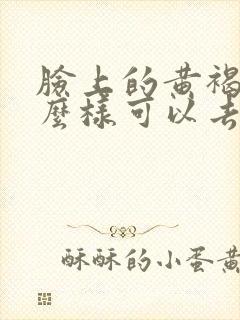 臉上的黃褐
麼樣可以去
酥酥的小蛋黃